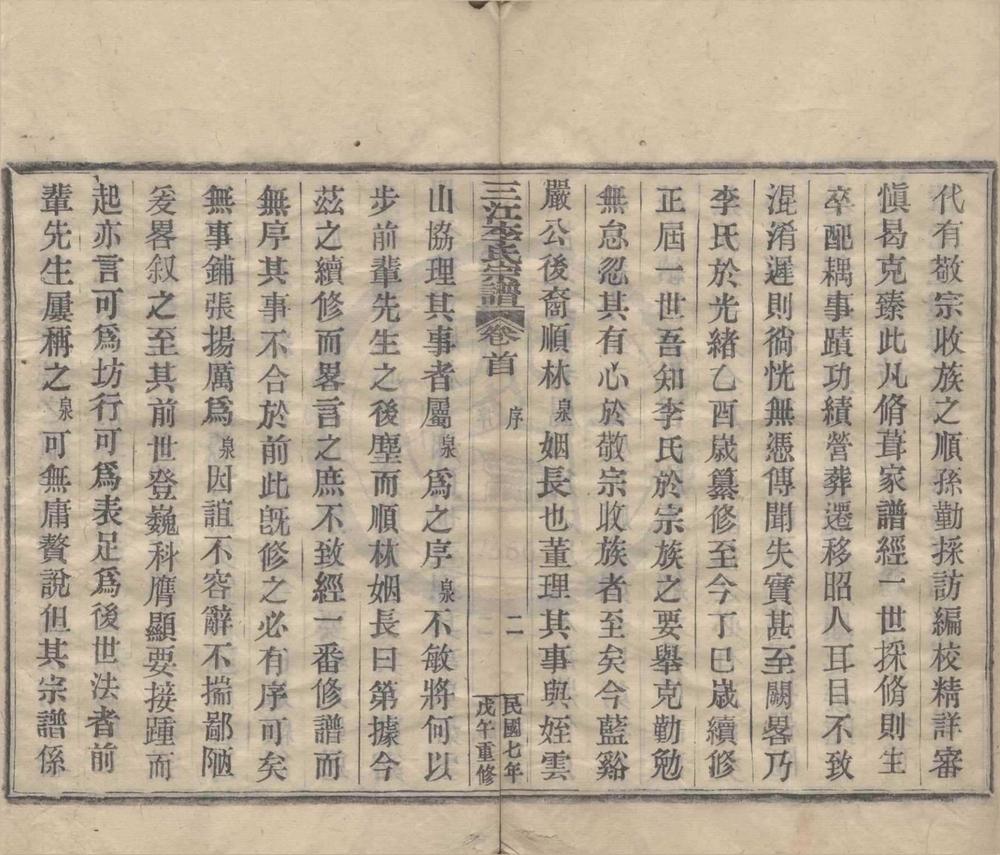 代有敬宗收族之順孫勤採訪編校精詳審
慎曷克臻此凡脩葺家譜經一世採脩則生
卒配耦事蹟功績營葬遷移昭人耳目不致
混淆遲則徜恍無憑傳聞失實甚至闕畧乃
李氏於光緒乙酉歲纂修至今丁巳歲續修
正屆一世吾知李氏於宗族之要舉克勤勉
無怠忽其有心於敬宗收族者至矣今藍谿
嚴公後裔順林泉姻長也董理其事與姪雲
三江李氏宗譜 卷首 序 二 民國七年戊午重修
山協理其事者屬泉為之序泉不敏將何以
步前輩先生之後塵而順林姻長曰第據今
茲之續修而畧言之庶不致經一番修譜而
無序其事不合於前此既修之必有序可矣
無事鋪張揚厲為泉因誼不容辭不揣鄙陋
爰畧叙之至其前世登巍科膺顯要接踵而
起亦言可為坊行可為表足為後世法者前
輩先生屢稱之泉可無庸贅說但其宗譜係